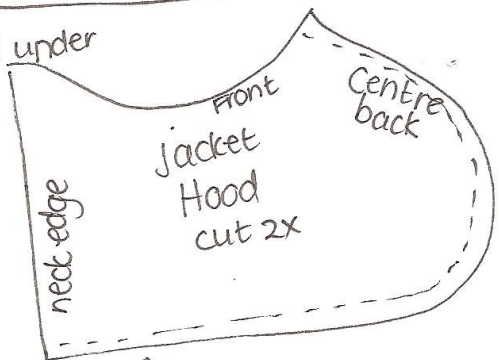 under
Front
Centre
back
jacket
Hood
cut 2x
neck edge